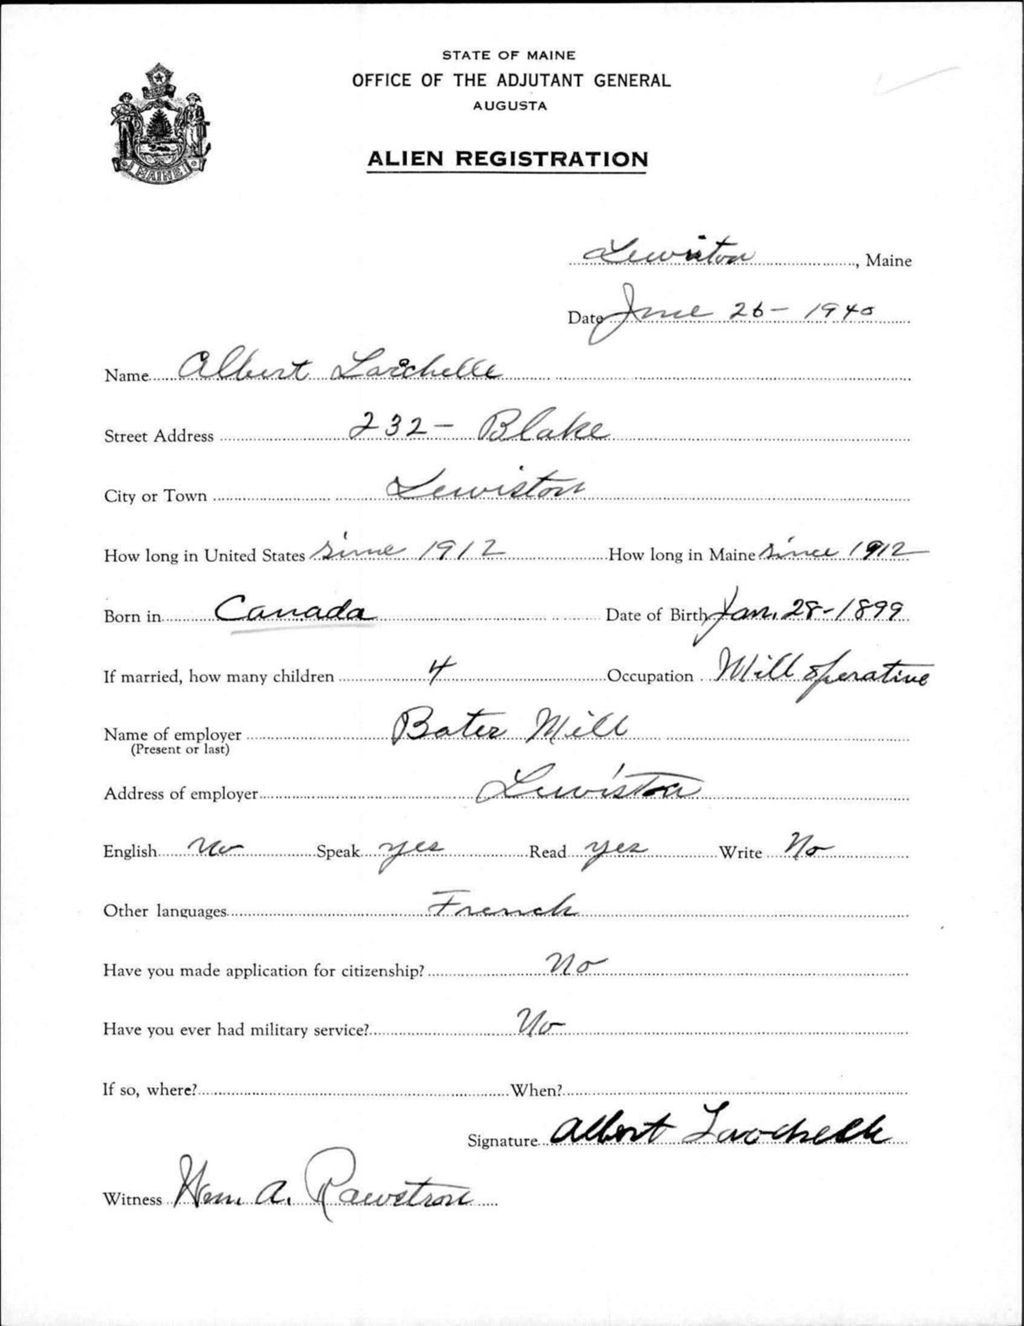 STATE OF MAINE
OFFICE OF THE ADJUTANT GENERAL
AUGUSTA
ALIEN REGISTRATION
MAINE
Lewiston, Maine
Date June 26 - 1940
Name Albert Larochelle
Street Address 232 - Blake
City or Town Lewiston
How long in United States Since 1912 How long in Maine Since 1912
Born in Canada Date of Birth Jan. 28 - 1899
If married, how many children 4 Occupation Mill operative
Name of employer Bates Mill
(Present or last)
Address of employer Lewiston
English No Speak yes Read yes Write No
Other languages French
Have you made application for citizenship? No
Have you ever had military service? No
If so, where? When?
Signature Albert Larochelle
Witness Wm. A. Rawstron